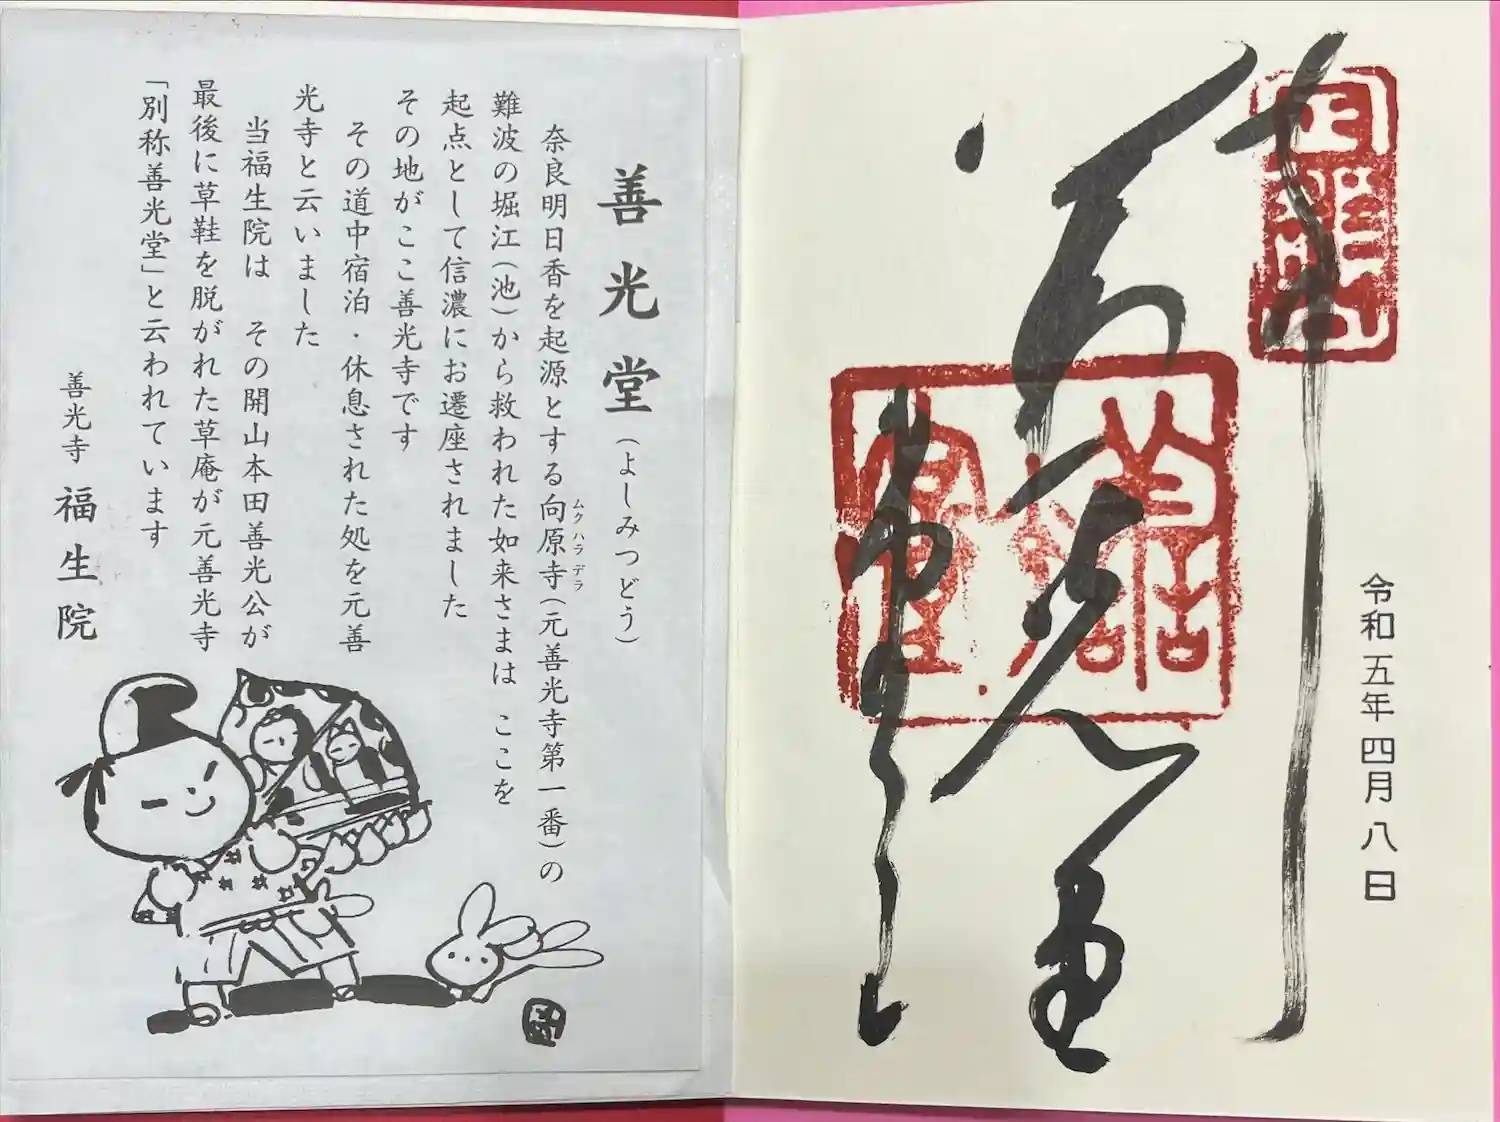 奉拝
善光堂
令和五年四月八日
善光堂(よしみつどう)
奈良明日香を起源とする向原寺(元善光寺第一番)の
ムクハラデラ
難波の堀江(池)から救われた如来さまは ここを
起点として信濃にお遷座されました
その地がここ善光寺です
その道中宿泊・休息された処を元善
光寺と云いました
当福生院は その開山本田善光公が
最後に草鞋を脱がれた草庵が元善光寺
「別称善光堂」と云われています
善光寺 福生院